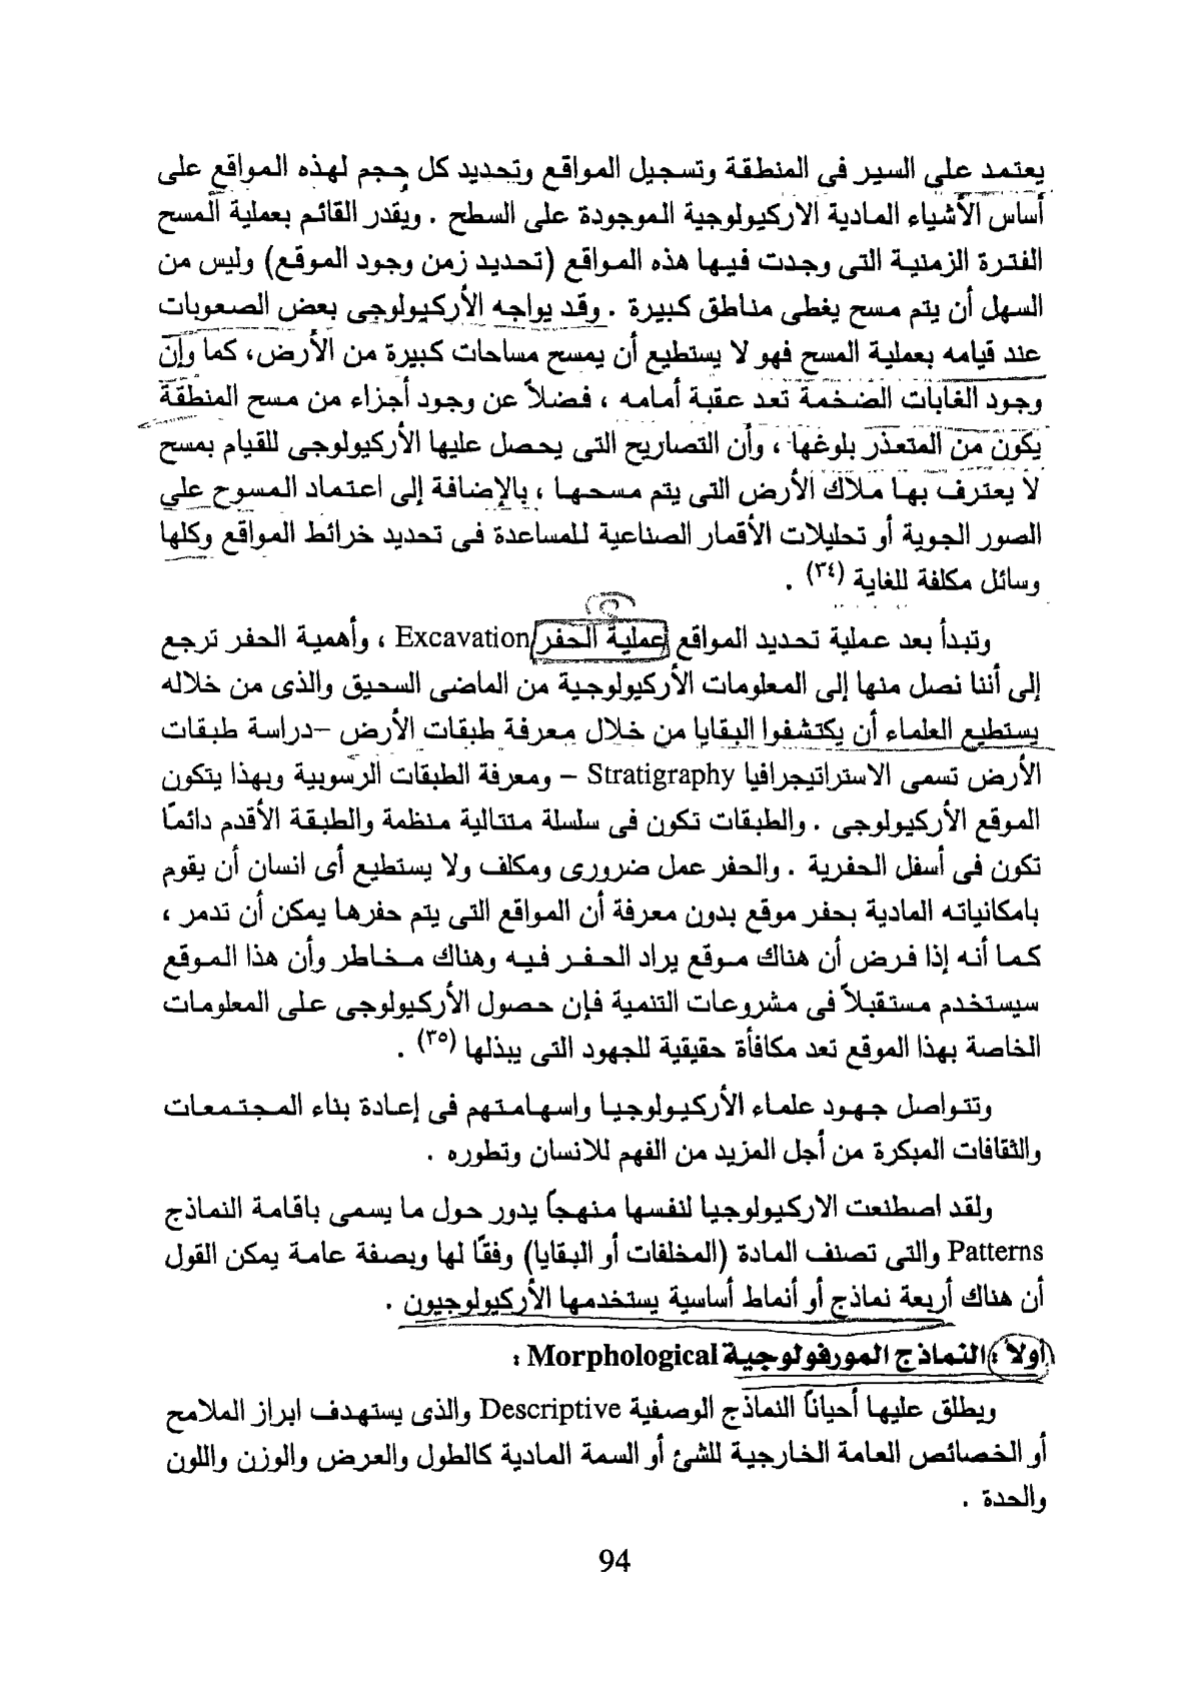 يعتمد على السير فى المنطقة وتسجيل المواقع وتحديد كل حجم لهذه المواقع على
أساس الأشياء المادية الاركيولوجية الموجودة على السطح . ويقدر القائم بعملية المسح
الفترة الزمنية التى وجدت فيها هذه المواقع (تحديد زمن وجود الموقع) وليس من
السهل أن يتم مسح يغطى مناطق كبيرة . وقد يواجه الأركيولوجى بعض الصعوبات
عند قيامه بعملية المسح فهو لا يستطيع أن يمسح مساحات كبيرة من الأرض، كما وإن
وجود الغابات الضخمة تعد عقبة أمامه ، فضلاً عن وجود أجزاء من مسح المنطقة
يكون من المتعذر بلوغها ، وأن التصاريح التى يحصل عليها الأركيولوجى للقيام بمسح
لا يعترف بها ملاك الأرض التى يتم مسحها ، بالإضافة إلى اعتماد المسوح على
الصور الجوية أو تحليلات الأقمار الصناعية للمساعدة فى تحديد خرائط المواقع وكلها
وسائل مكلفة للغاية (٣٤) .
وتبدأ بعد عملية تحديد المواقع عملية الحفر Excavation ، وأهمية الحفر ترجع
إلى أننا نصل منها إلى المعلومات الأركيولوجية من الماضى السحيق والذى من خلاله
يستطيع العلماء أن يكتشفوا البقايا من خلال معرفة طبقات الأرض –دراسة طبقات
الأرض تسمى الاستراتيجرافيا Stratigraphy – ومعرفة الطبقات الرسوبية وبهذا يتكون
الموقع الأركيولوجى . والطبقات تكون فى سلسلة متتالية منظمة والطبقة الأقدم دائماً
تكون فى أسفل الحفرية . والحفر عمل ضرورى ومكلف ولا يستطيع أى انسان أن يقوم
بامكانياته المادية بحفر موقع بدون معرفة أن المواقع التى يتم حفرها يمكن أن تدمر ،
كما أنه إذا فرض أن هناك موقع يراد الحفر فيه وهناك مخاطر وأن هذا الموقع
سيستخدم مستقبلاً فى مشروعات التنمية فإن حصول الأركيولوجى على المعلومات
الخاصة بهذا الموقع تعد مكافأة حقيقية للجهود التى يبذلها (٣٥) .
وتتواصل جهود علماء الأركيولوجيا واسهامتهم فى إعادة بناء المجتمعات
والثقافات المبكرة من أجل المزيد من الفهم للانسان وتطوره .
ولقد اصطنعت الاركيولوجيا لنفسها منهجاً يدور حول ما يسمى باقامة النماذج
Patterns والتى تصنف المادة (المخلفات أو البقايا) وفقاً لها وبصفة عامة يمكن القول
أن هناك أربعة نماذج أو أنماط أساسية يستخدمها الأركيولوجيون .
أولاً : النماذج المورفولوجية Morphological :
ويطلق عليها أحياناً النماذج الوصفية Descriptive والذى يستهدف ابراز الملامح
أو الخصائص العامة الخارجية للشئ أو السمة المادية كالطول والعرض والوزن واللون
والحدة .
94